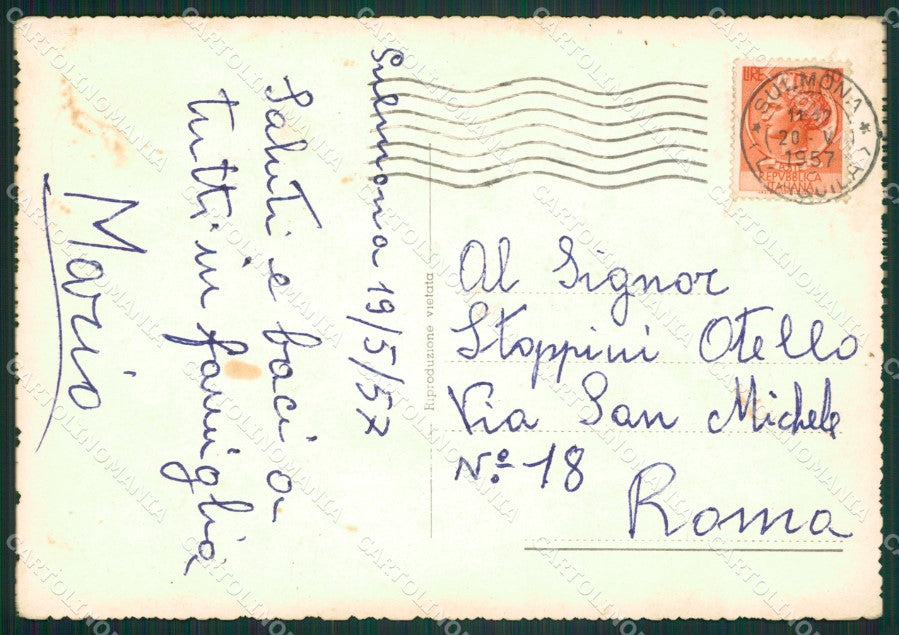 Sulmona 19/5/57
Saluti e baci a
tutti in famiglia
Mario
Riproduzione vietata
LIRE
POSTE
REPVBBLICA
ITALIANA
SULMONA
20 V
1957
Al Signor
Stoppini Otello
Via San Michele
Nº 18
Roma
CARTOLINOMANIA